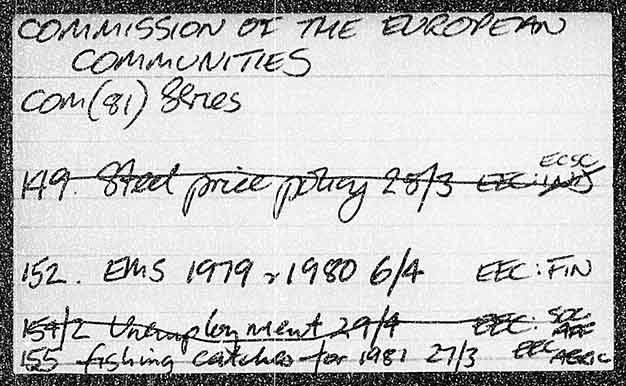 COMMISSION OF THE EUROPEAN
COMMUNITIES
COM(81) Series
149. Steel price policy 25/3 ECSC
152. EMS 1979 & 1980 6/4 EEC: FIN
154/2 Unemployment 29/4 EEC: SOC AFF
155 fishing catches for 1981 27/3 EEC AGRIC